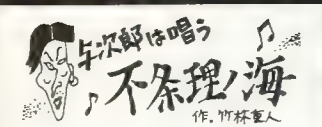 与次郎は唱う
不条理ノ海
作.竹林直人